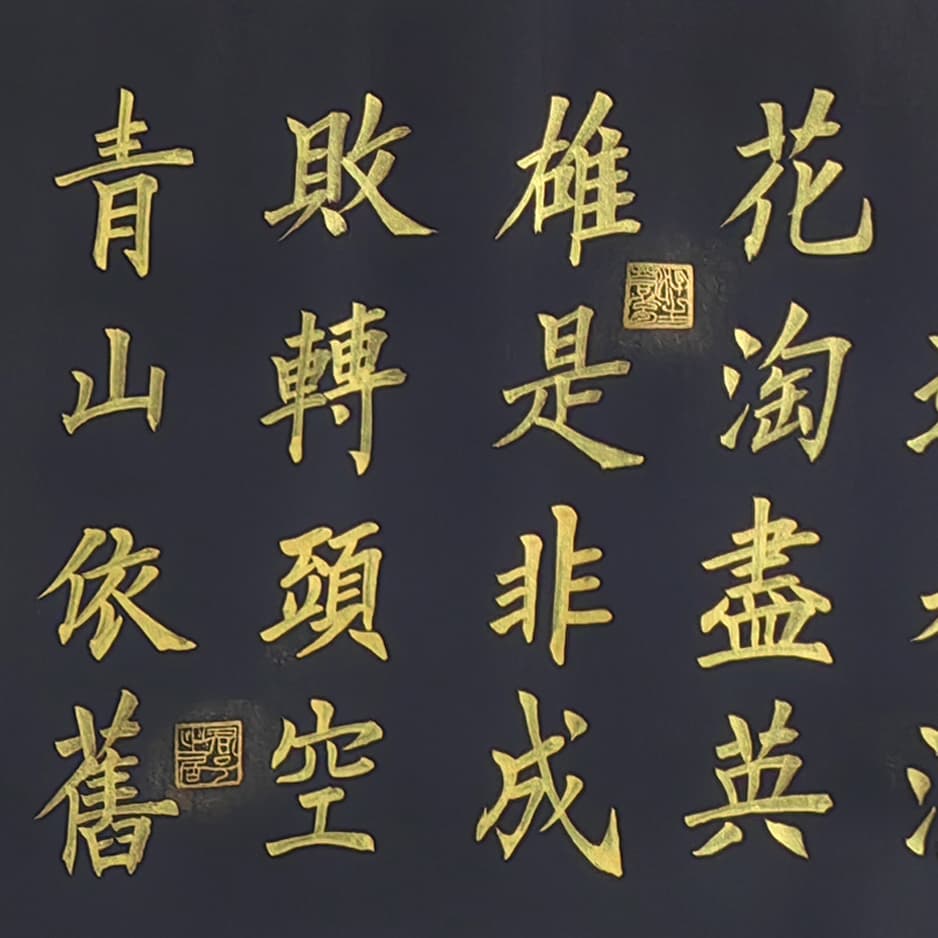 花淘盡英
雄是非成
敗轉頭空
青山依舊